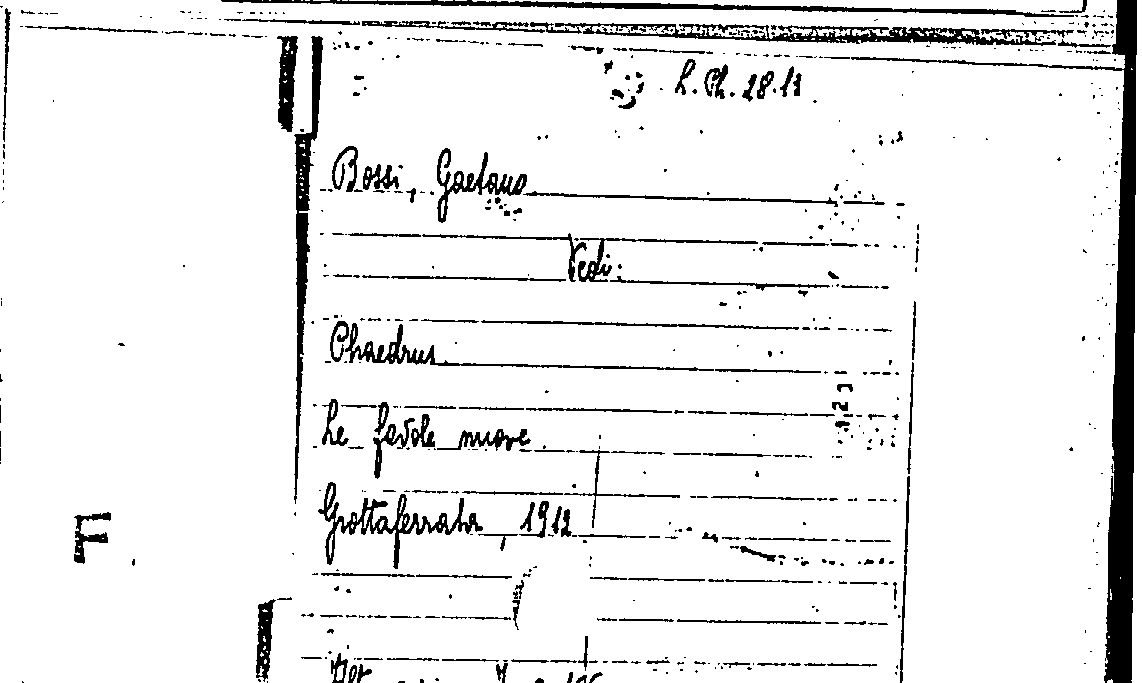 L. Ph. 28.13
Bossi, Gaetano
Vedi:
Phaedrus
Le favole nuove
Grottaferrata, 1912